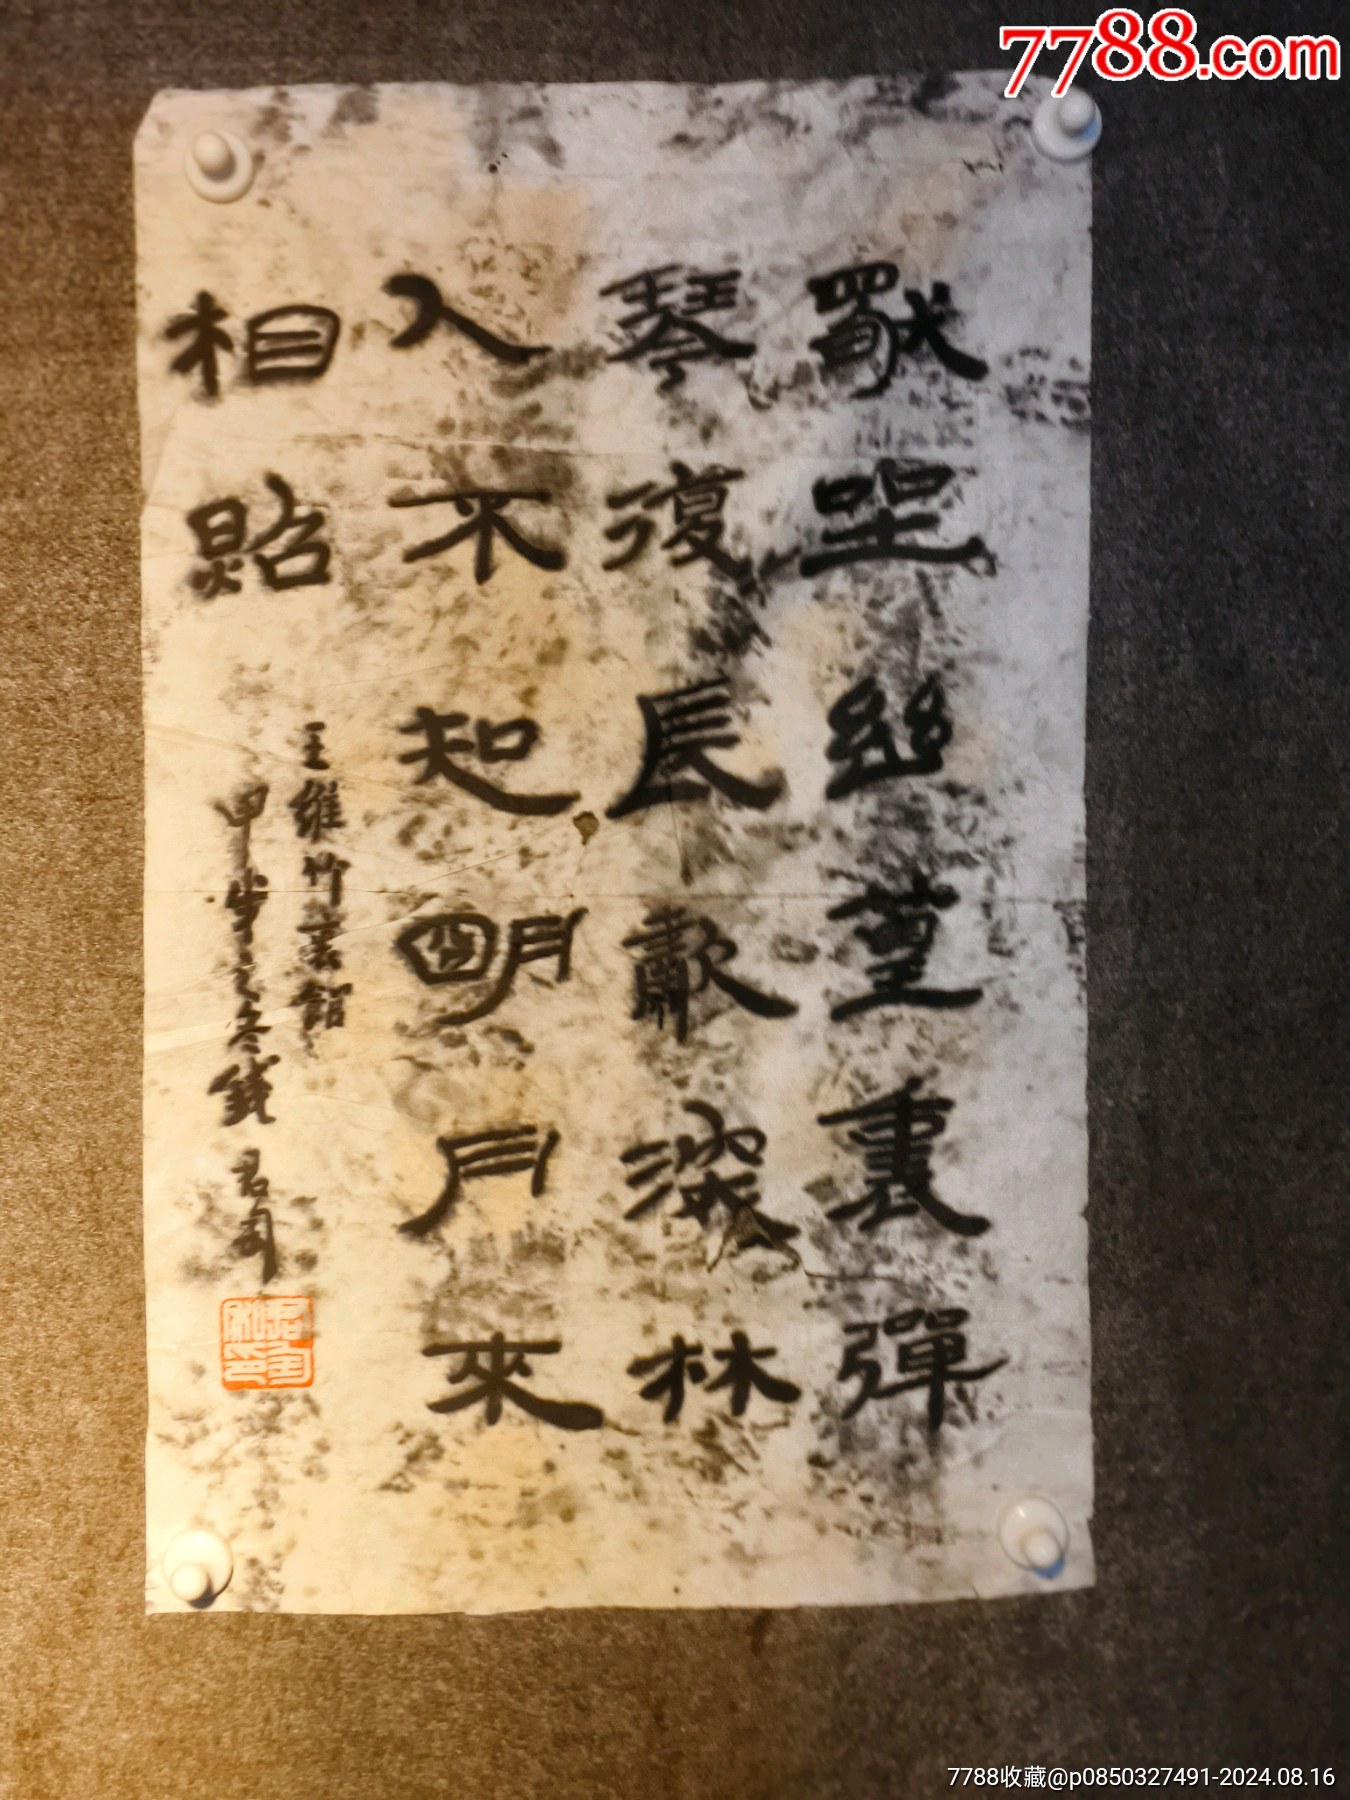 7788.com
獨坐幽篁裏彈
琴復長歗深林
人不知明月來
相照
王維竹裏館
甲 之冬錢君匋
7788收藏@p0850327491-2024.08.16